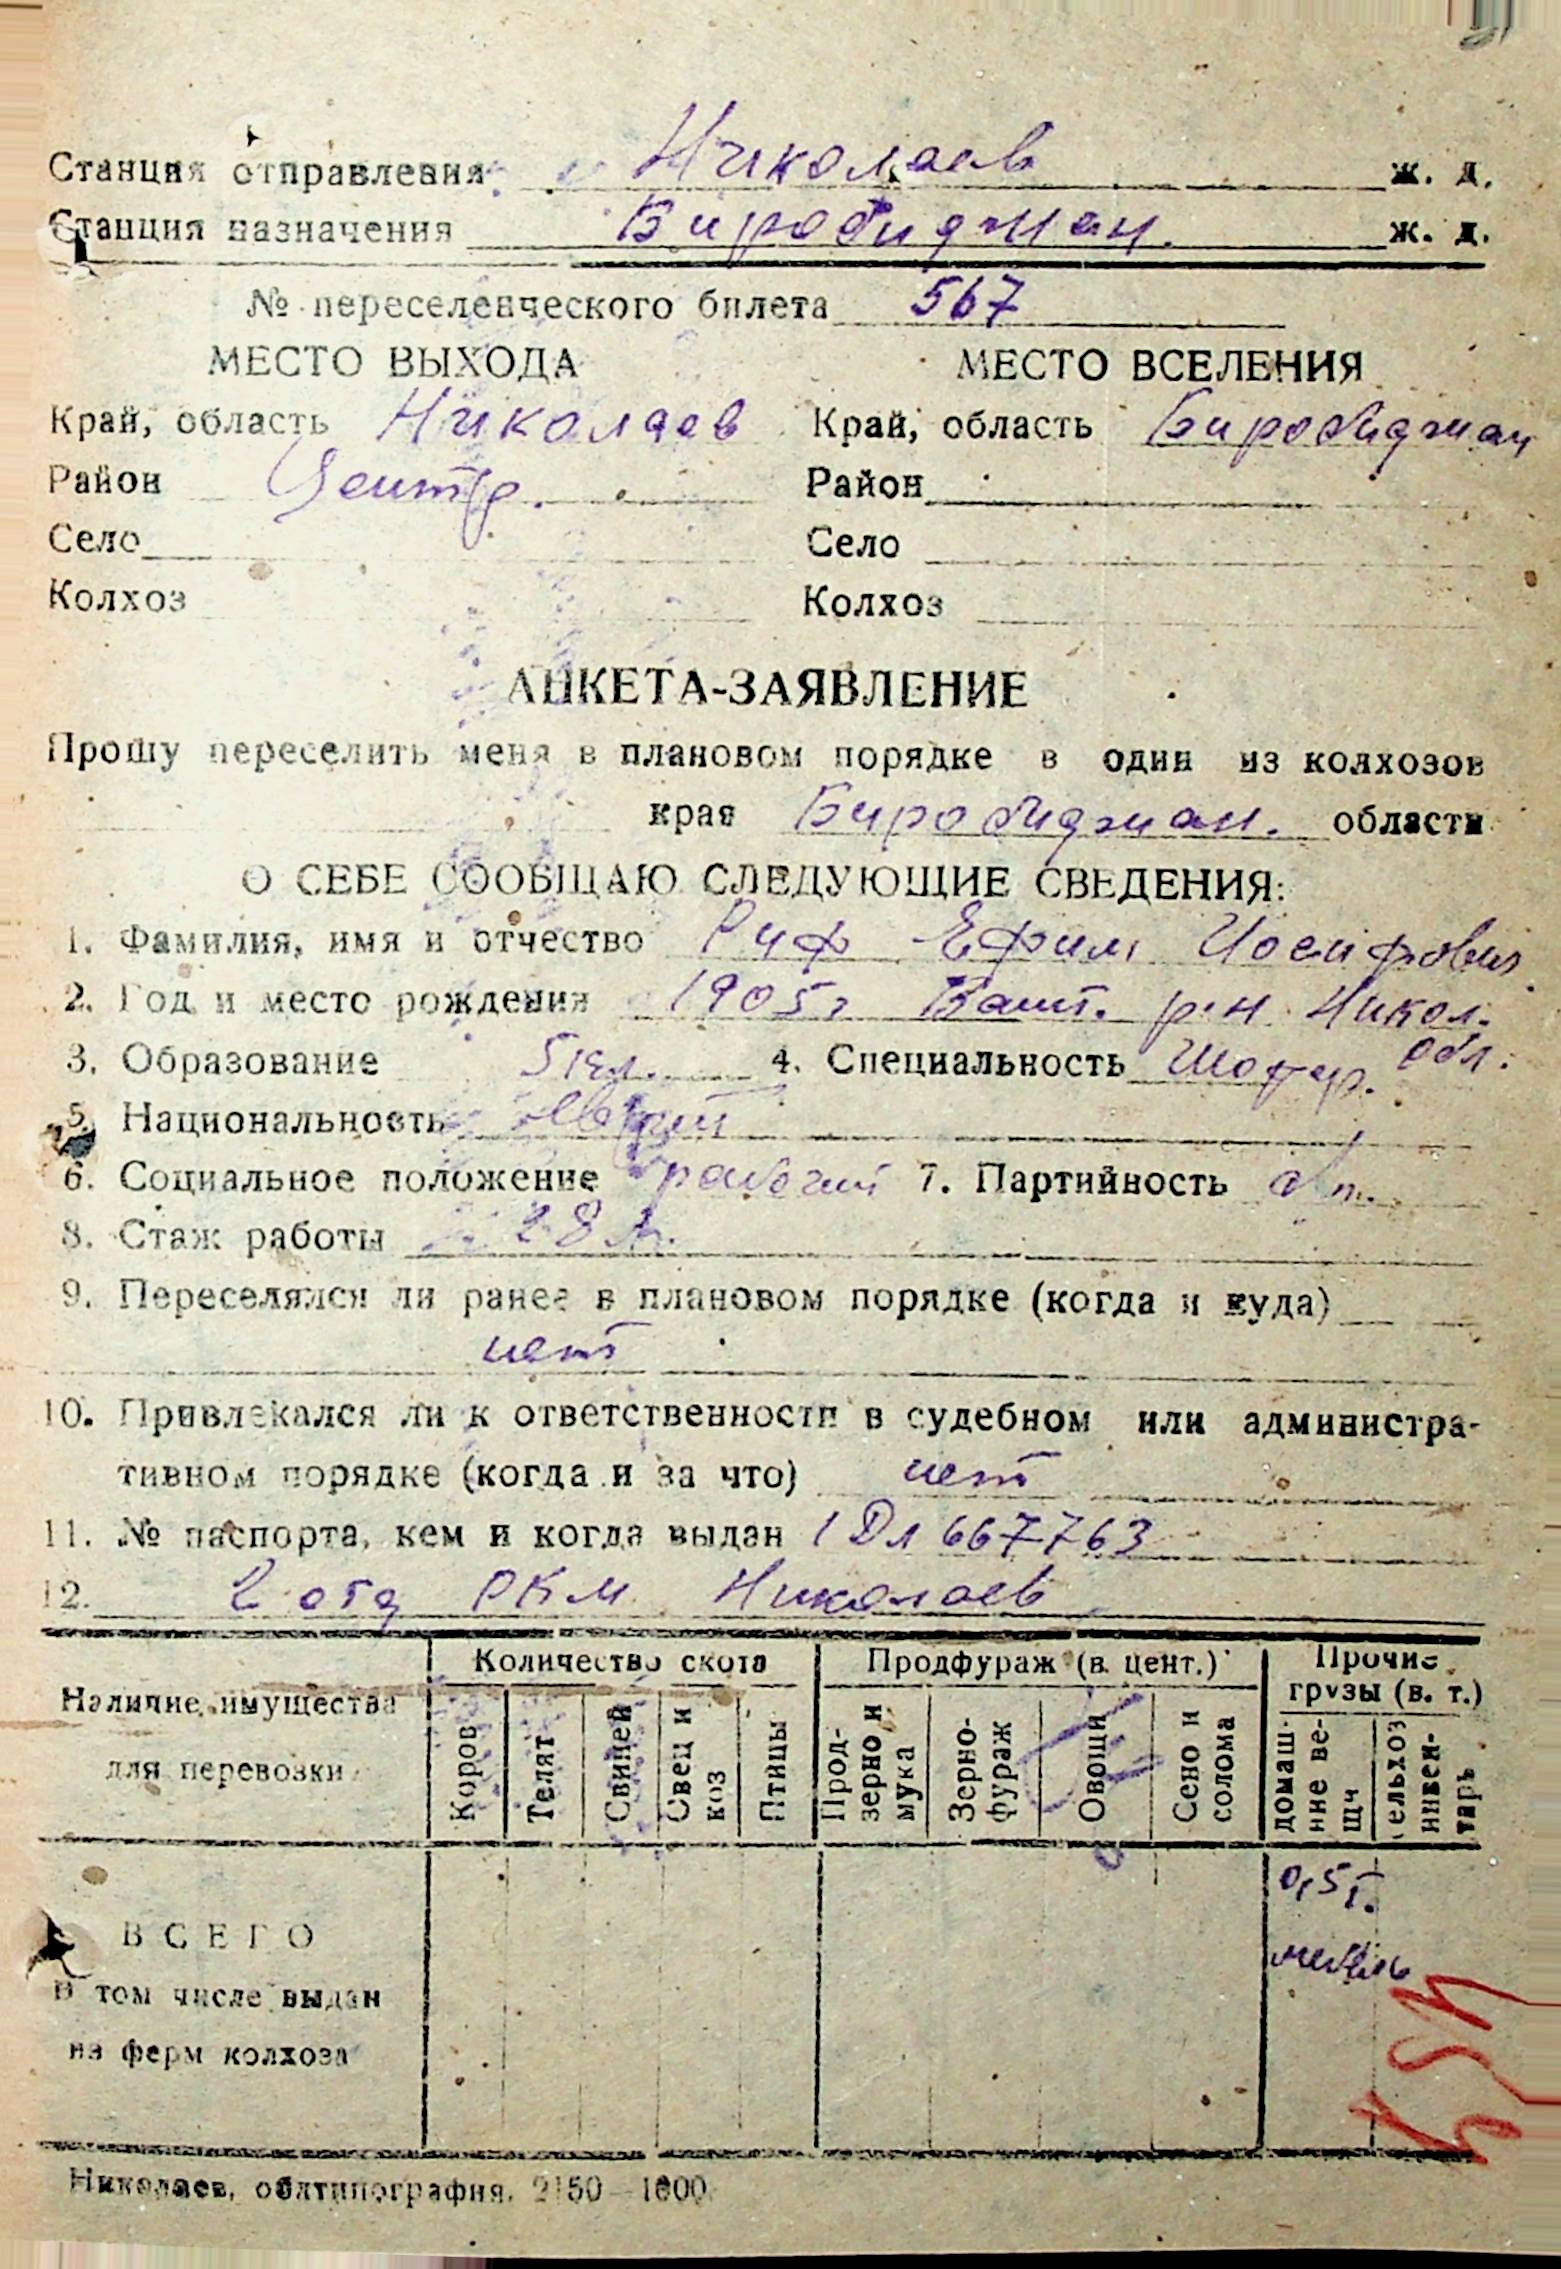 Станция отправления Николаев ж. д.
Станция назначения Биробиджан. ж. д.
№ переселенческого билета 567
МЕСТО ВЫХОДА МЕСТО ВСЕЛЕНИЯ
Край, область Николаев Край, область Биробиджан
Район Центр. Район
Село Село
Колхоз Колхоз
АНКЕТА-ЗАЯВЛЕНИЕ
Прошу переселить меня в плановом порядке в один из колхозов
края Биробиджан. области
О СЕБЕ СООБЩАЮ СЛЕДУЮЩИЕ СВЕДЕНИЯ:
1. Фамилия, имя и отчество Риф Ефим Иосифович
2. Год и место рождения 1905г Вашт. р-н Никол. обл.
3. Образование 5 кл. 4. Специальность Шофер.
5. Национальность Еврей
6. Социальное положение рабочий 7. Партийность б/п.
8. Стаж работы 28 л.
9. Переселялся ли ранее в плановом порядке (когда и куда)
нет
10. Привлекался ли к ответственности в судебном или администра-
тивном порядке (когда и за что) нет
11. № паспорта, кем и когда выдан 1 Дл 667763
12. 2 отд РКМ Николаев
Наличие имущества для перевозки
Количество скота
Продфураж (в. цент.)
Прочие грузы (в. т.)
Коров
Телят
Свиней
Овец и коз
Птицы
Прод-зерно и мука
Зерно-фураж
Овощи
Сено и солома
домаш-ние ве-щи
сельхоз инвен-тарь
ВСЕГО 0,5 т.
мебель
в том числе выдан
из ферм колхоза
Николаев, облтипография. 2150—1000